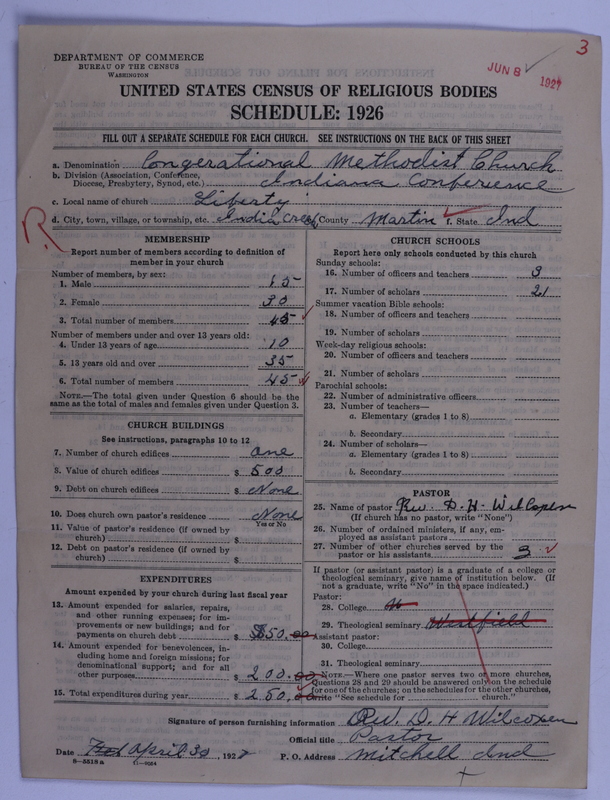 3
JUN 8 1927
DEPARTMENT OF COMMERCE
BUREAU OF THE CENSUS
WASHINGTON
UNITED STATES CENSUS OF RELIGIOUS BODIES
SCHEDULE: 1926
FILL OUT A SEPARATE SCHEDULE FOR EACH CHURCH. SEE INSTRUCTIONS ON THE BACK OF THIS SHEET
a. Denomination Congerational Methodist Church
b. Division (Association, Conference,
Diocese, Presbytery, Synod, etc.) Indiana Conference
c. Local name of church Liberty
d. City, town, village, or township, etc. India Creek County Martin f. State Ind
R
MEMBERSHIP
Report number of members according to definition of
member in your church
Number of members, by sex:
1. Male 15
2. Female 30
3. Total number of members 45
Number of members under and over 13 years old:
4. Under 13 years of age 10
5. 13 years old and over 35
6. Total number of members 45
NOTE.—The total given under Question 6 should be the
same as the total of males and females given under Question 3.
CHURCH BUILDINGS
See instructions, paragraphs 10 to 12
7. Number of church edifices one
8. Value of church edifices $ 500
9. Debt on church edifices $ None
10. Does church own pastor's residence? None
Yes or No
11. Value of pastor's residence (if owned by
church) $
12. Debt on pastor's residence (if owned by
church) $
EXPENDITURES
Amount expended by your church during last fiscal year
13. Amount expended for salaries, repairs,
and other running expenses; for im-
provements or new buildings; and for
payments on church debt $ 50.00
14. Amount expended for benevolences, in-
cluding home and foreign missions; for
denominational support; and for all
other purposes $ 200.00
15. Total expenditures during year $ 250.00
CHURCH SCHOOLS
Report here only schools conducted by this church
Sunday schools:
16. Number of officers and teachers 3
17. Number of scholars 21
Summer vacation Bible schools:
18. Number of officers and teachers
19. Number of scholars
Week-day religious schools:
20. Number of officers and teachers
21. Number of scholars
Parochial schools:
22. Number of administrative officers
23. Number of teachers—
a. Elementary (grades 1 to 8)
b. Secondary
24. Number of scholars—
a. Elementary (grades 1 to 8)
b. Secondary
PASTOR
25. Name of pastor Rev. D. H. Wilcoxen
(If church has no pastor, write "None")
26. Number of ordained ministers, if any, em-
ployed as assistant pastors
27. Number of other churches served by the
pastor or his assistants 3
If pastor (or assistant pastor) is a graduate of a college or
theological seminary, give name of institution below. (If
not a graduate, write "No" in the space indicated.)
Pastor:
28. College
29. Theological seminary Westfield
Assistant pastor:
30. College
31. Theological seminary
NOTE.—Where one pastor serves two or more churches,
Questions 28 and 29 should be answered only on the schedule
for one of the churches; on the schedules for the other churches,
write "See schedule for church."
Signature of person furnishing information Rev. D. H Wilcoxen
Official title Pastor
Date April 30, 1927 P. O. Address Mitchell Ind
8—5518 a 11—9084